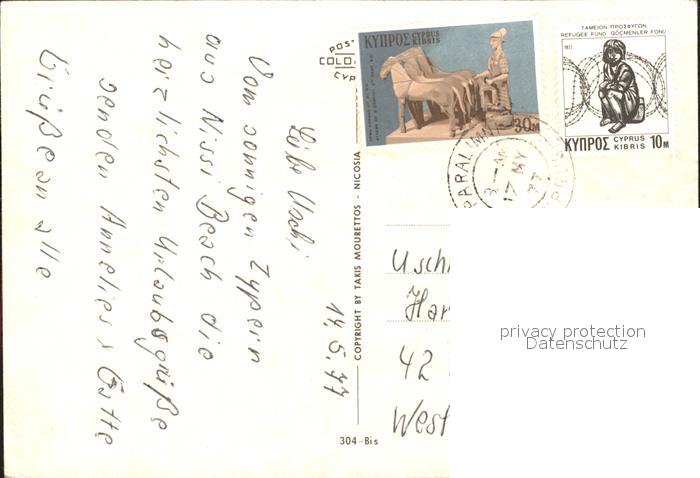 14.5.77
Liebe Uschi
Vom sonnigen Zypern
aus Nissi Beach die
herzlichsten Urlaubsgrüße
senden Annelies +
Grüße an alle
POS
COLO
CYP
COPYRIGHT BY TAKIS MOURETTOS - NICOSIA
304-Bis
ΚΥΠΡΟΣ CYPRUS
KIBRIS
30M
ΤΑΜΕΙΟΝ ΠΡΟΣΦΥΓΩΝ
REFUGEE FUND GÖÇMENLER FONU
1977
ΚΥΠΡΟΣ CYPRUS
KIBRIS 10M
PARALIMNI
AM
17 MY
77
CYPRUS
Uschi
Har
42
West
privacy protection
Datenschutz